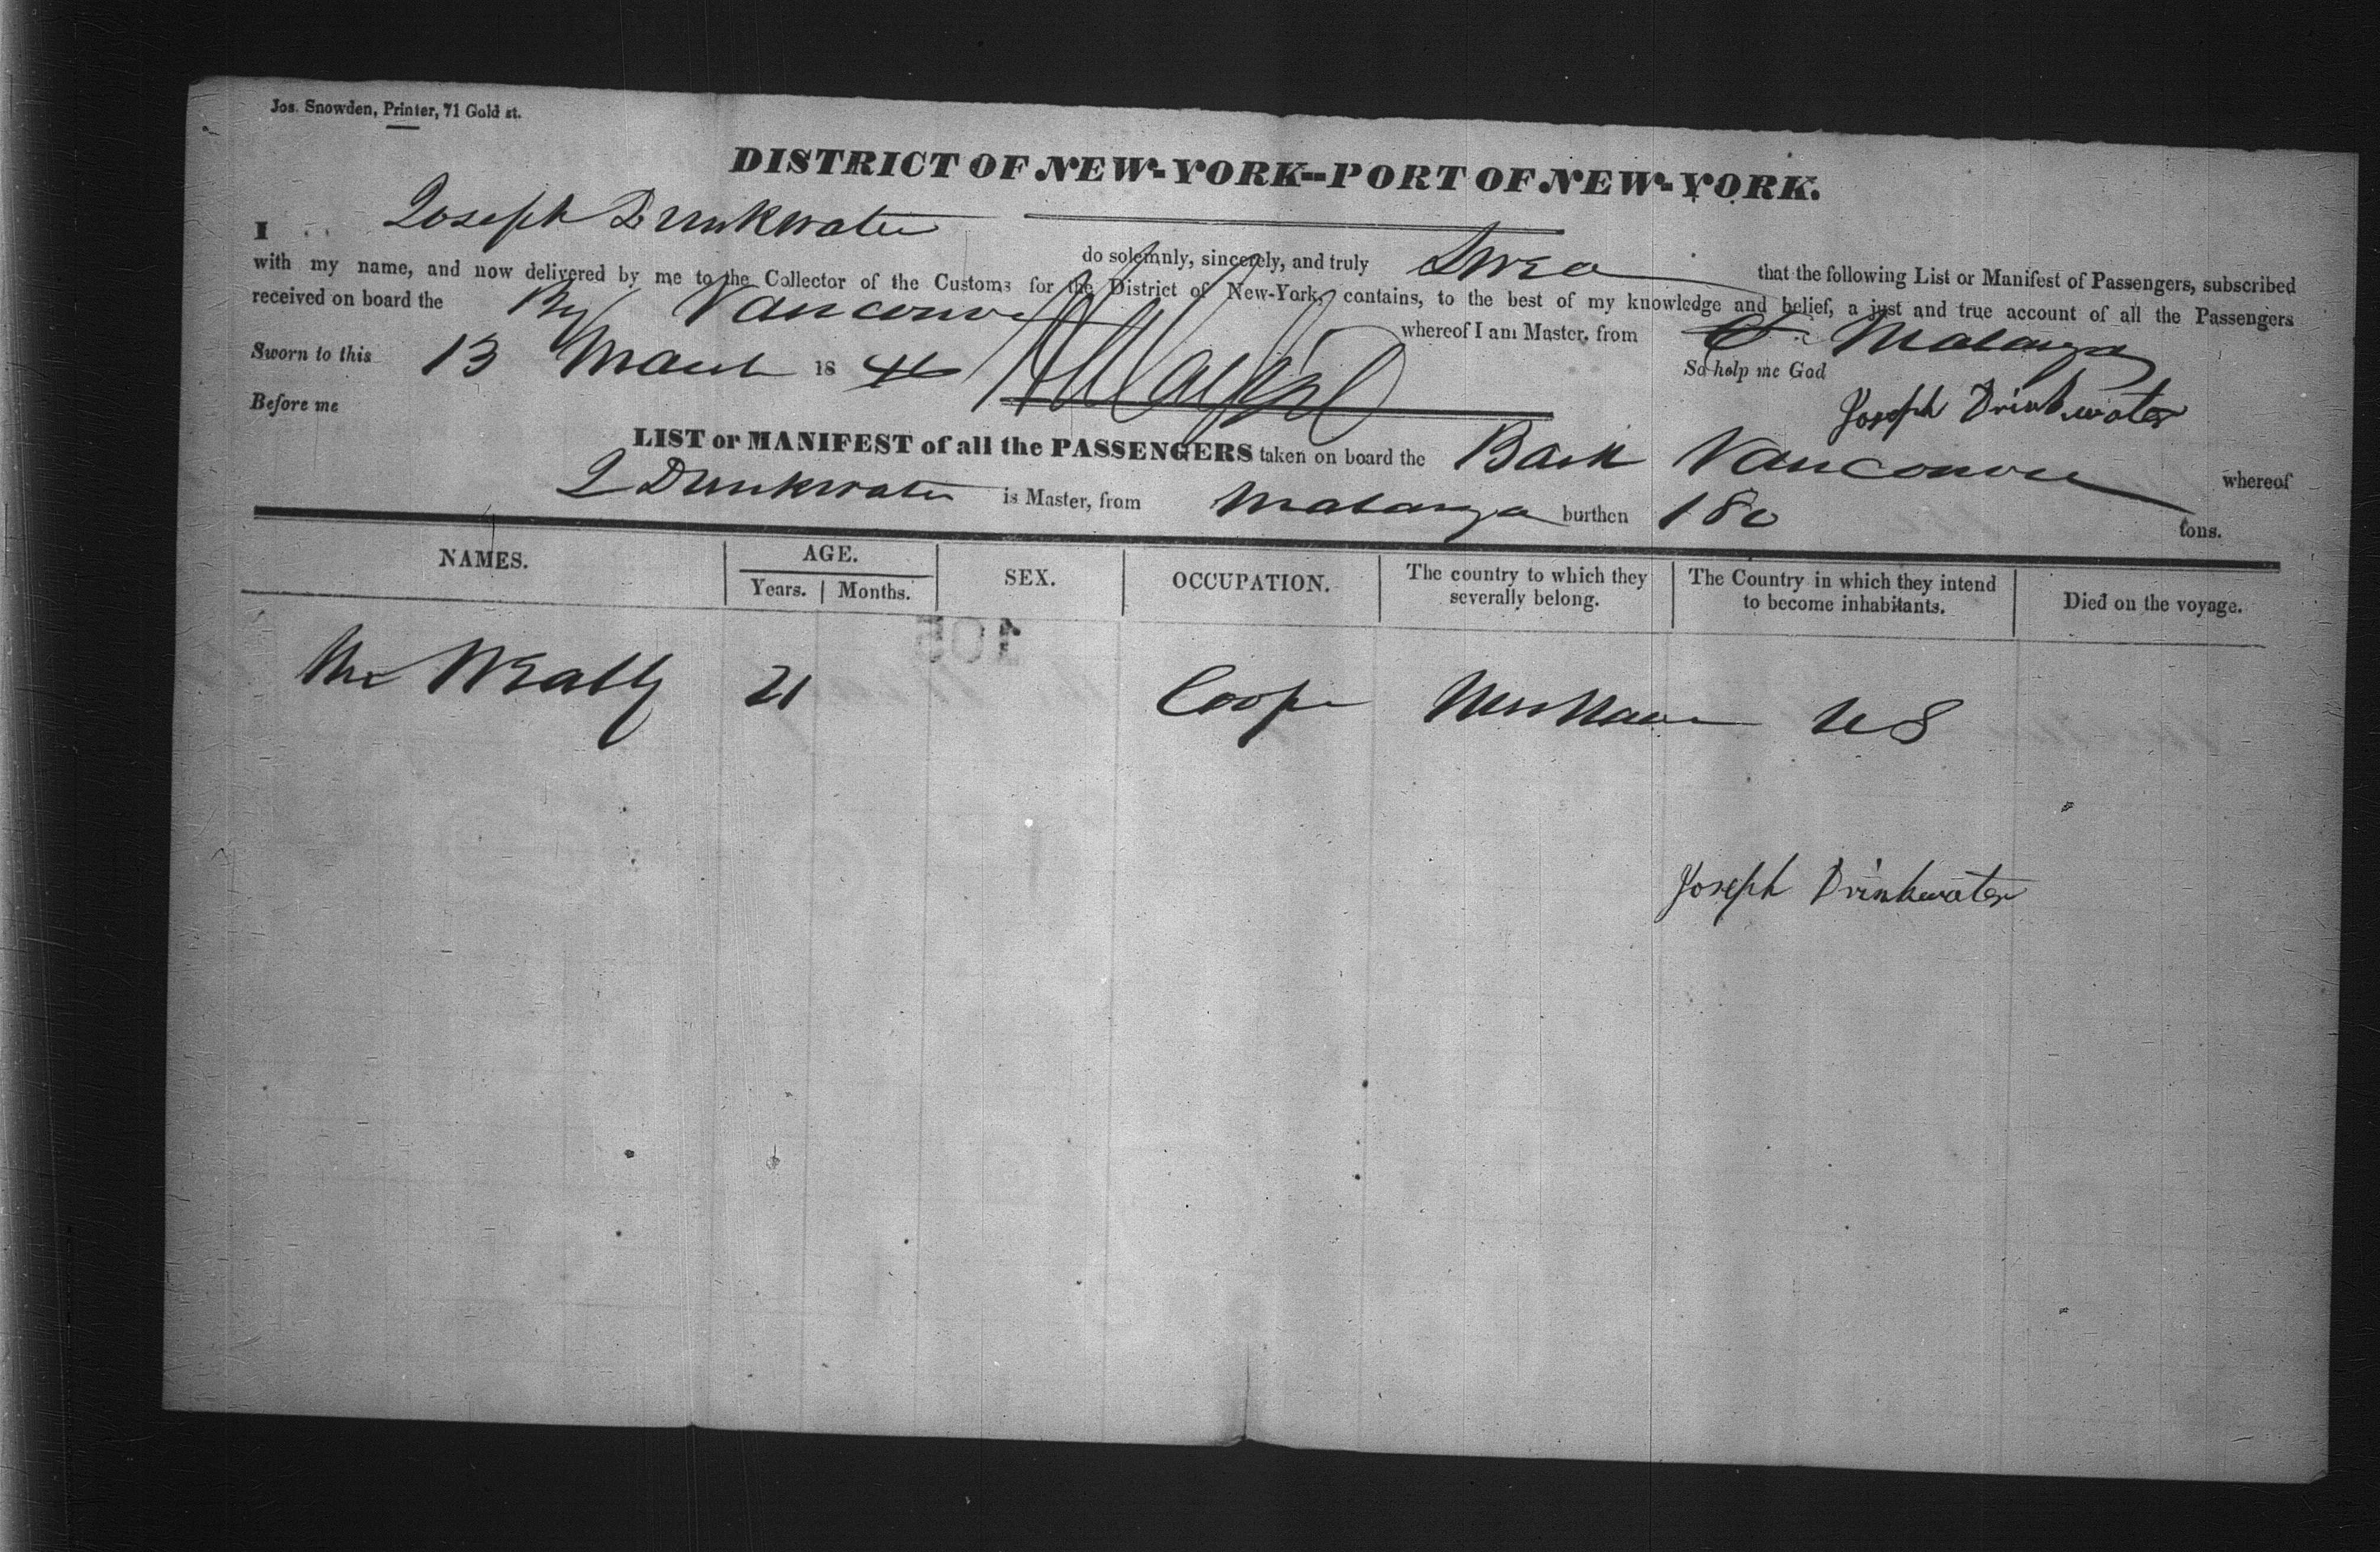 Jos. Snowden, Printer, 71 Gold st.
DISTRICT OF NEW-YORK--PORT OF NEW-YORK.
I Joseph Drinkwater do solemnly, sincerely, and truly that the following List or Manifest of Passengers, subscribed
with my name, and now delivered by me to the Collector of the Customs for the District of New-York, contains, to the best of my knowledge and belief, a just and true account of all the Passengers
received on board the Vancouver whereof I am Master, from Matanza
Sworn to this 13 March 18 So help me God
Before me Joseph Drinkwater
LIST or MANIFEST of all the PASSENGERS taken on board the Bark Vancouver whereof
J Drinkwater is Master, from Matanza burthen 180 tons.
NAMES. AGE. SEX. OCCUPATION. The country to which they severally belong. The Country in which they intend to become inhabitants. Died on the voyage.
Years. Months.
105
21 Cooper US
Joseph Drinkwater